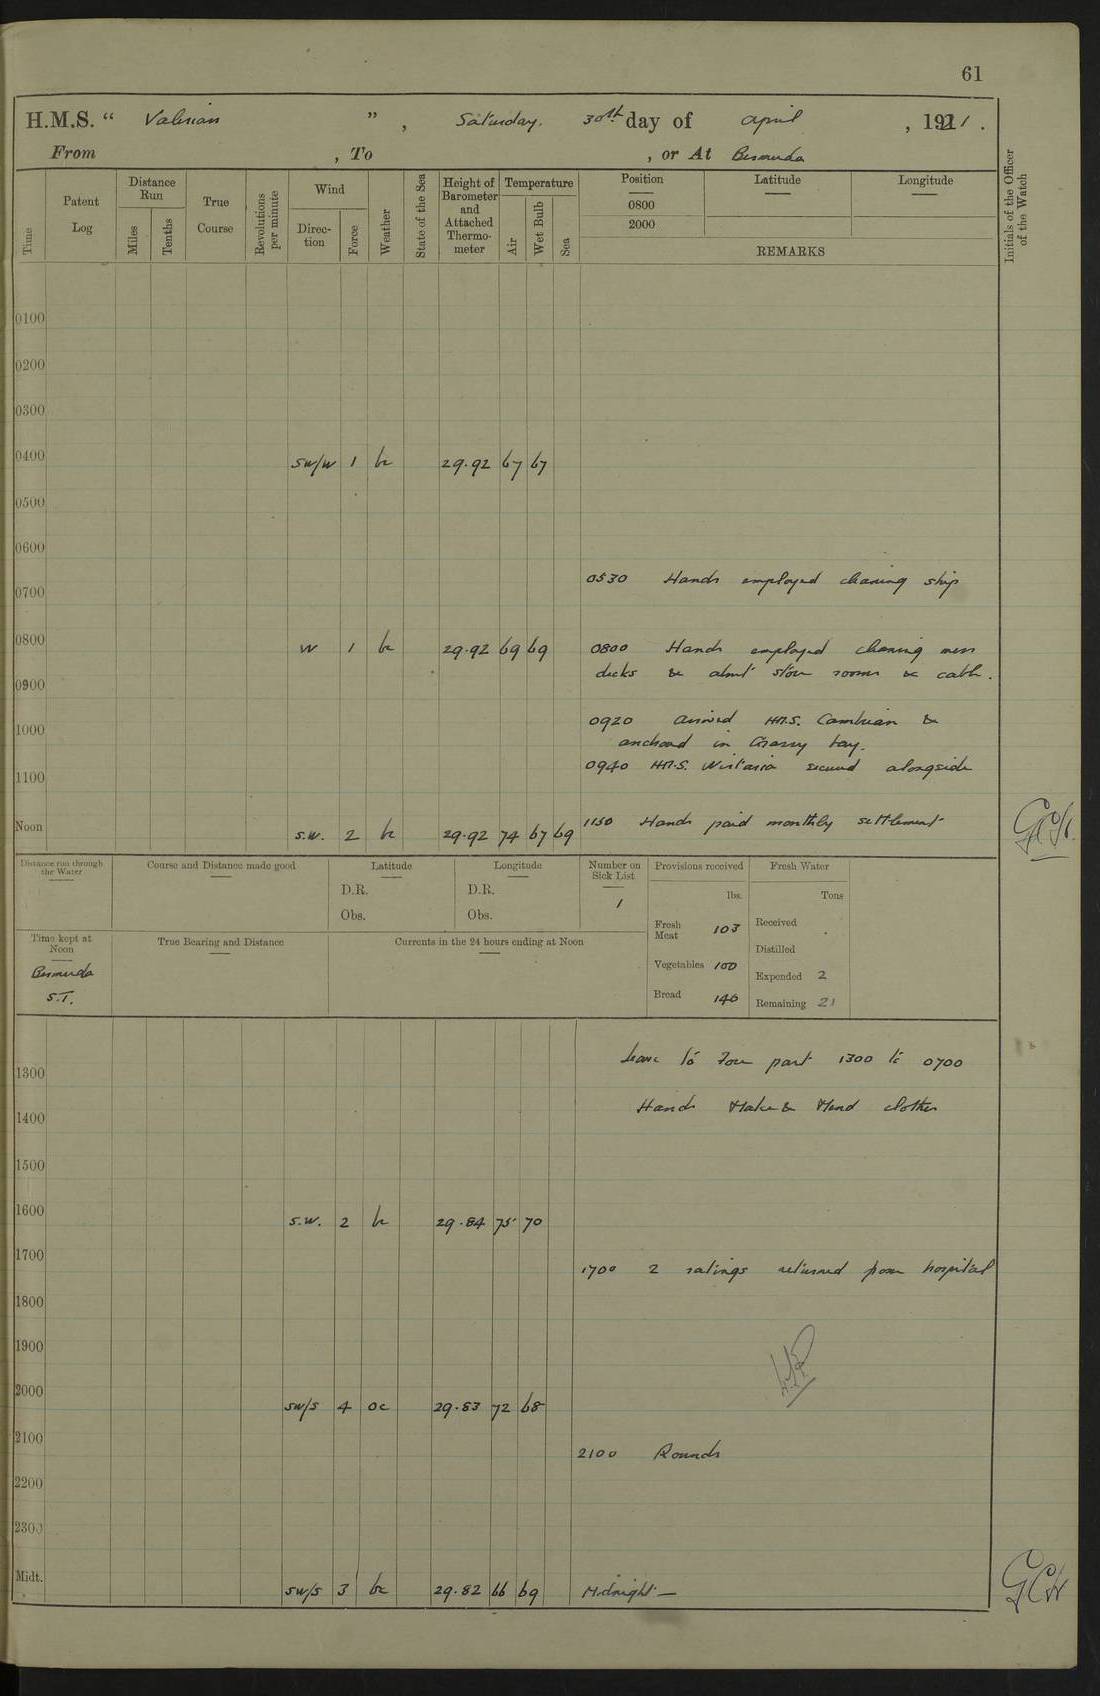 61
H.M.S. “ Valerian ” , Saturday. 30th day of April , 1921 .
From , To , or At Bermuda
Time Patent Log Distance Run Miles Tenths True Course Revolutions per minute Wind Direc-tion Force Weather State of the Sea Height of Barometer and Attached Thermo-meter Temperature Air Wet Bulb Sea Position 0800 2000 Latitude Longitude
REMARKS
Initials of the Officer of the Watch
0100
0200
0300
0400 SW/W 1 bc 29.92 67 67
0500
0600
0530 Hands employed cleaning ship
0700
0800 W 1 bc 29.92 69 69 0800 Hands employed cleaning mess
decks & store rooms & cable.
0900
0920 arrived HMS. Cambrian &
1000
anchored in Grassy bay.
0940 HM.S. Wistaria secured alongside
1100
1150 Hands paid monthly settlement
Noon S.W. 2 bc 29.92 74 67 69 GCH
Distance run through the Water Course and Distance made good Latitude Longitude Number on Sick List Provisions received Fresh Water
D.R. D.R. lbs. Tons
Obs. Obs. 1
Fresh Meat 103 Received
Time kept at Noon True Bearing and Distance Currents in the 24 hours ending at Noon
Distilled
Bermuda Vegetables 100 Expended 2
S.T. Bread 146 Remaining 21
Leave to Four part 1300 to 0700
1300
Hands Make & Mend clothes
1400
1500
1600 S.W. 2 bc 29.84 75 70
1700
1700 2 ratings returned from hospital
1800
1900
2000 SW/S 4 oc 29.83 72 68
2100
2100 Rounds
2200
2300
Midt. SW/S 3 bc 29.82 66 69 Midnight — GCH